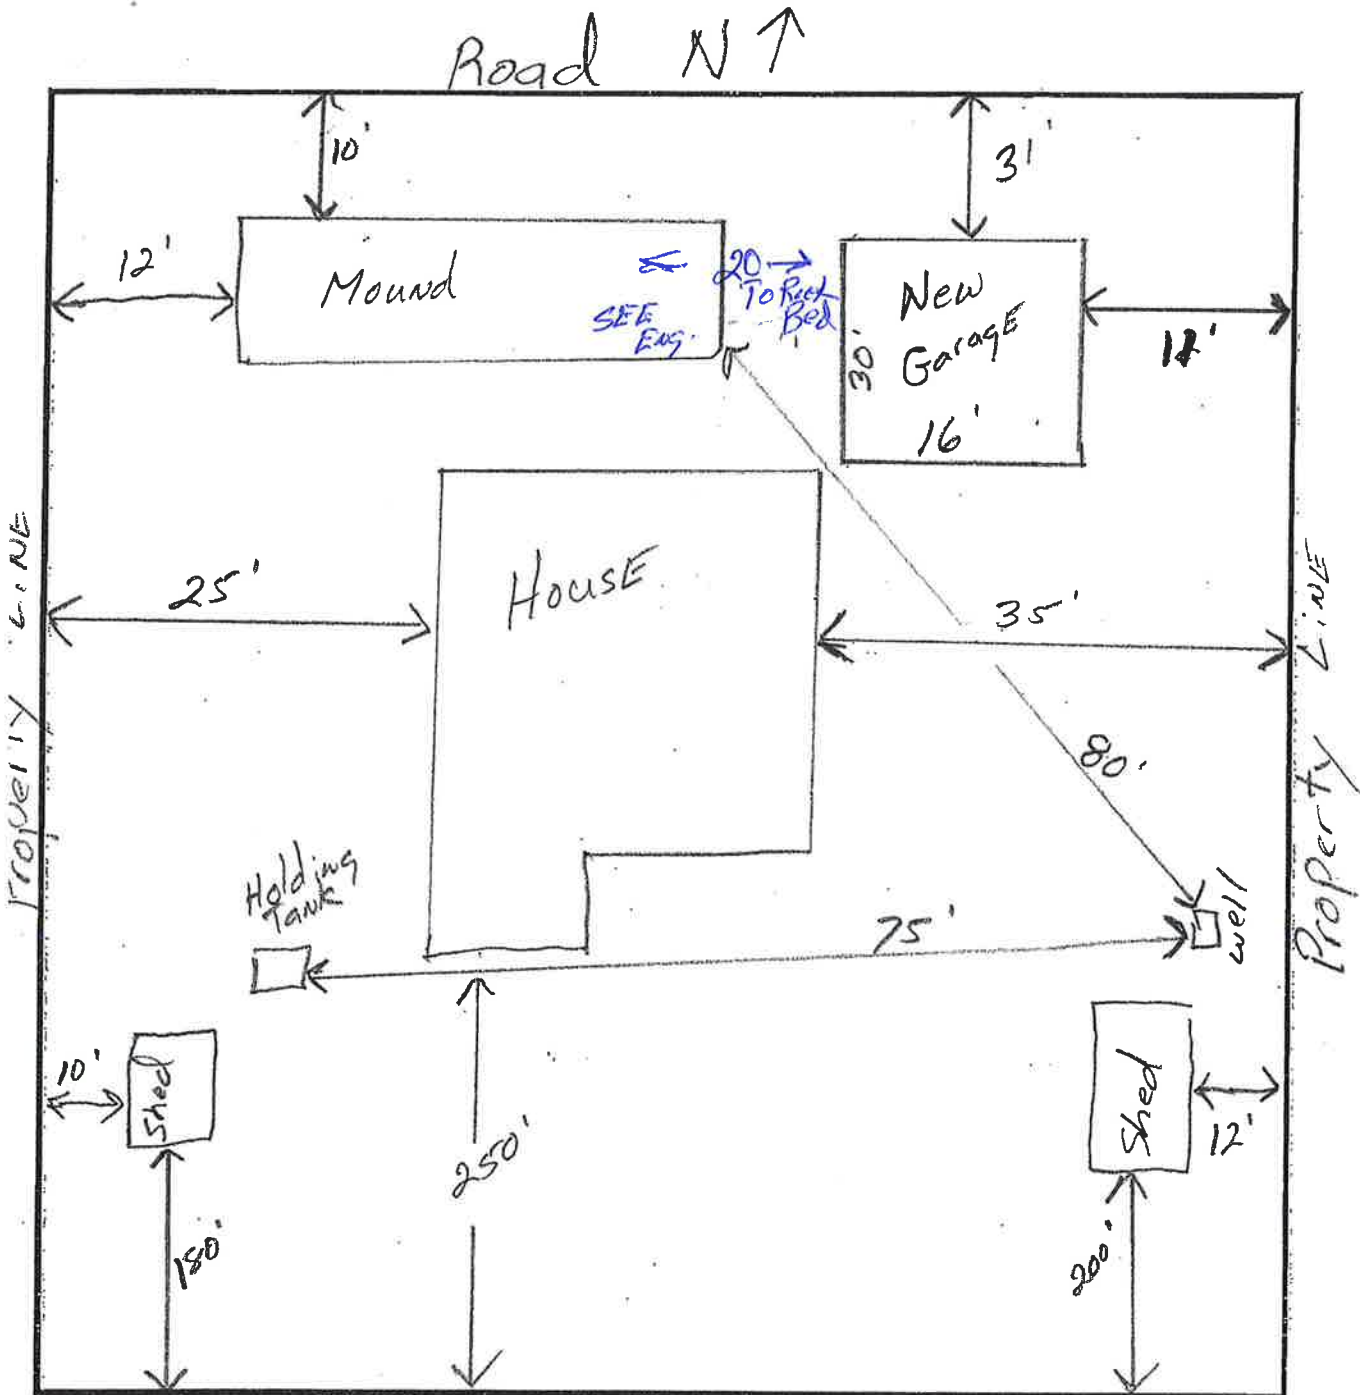 Road N
10'
31'
12'
Mound
20
To Rock
Bed
SEE
Eng.
New
Garage
30'
16'
Property LINE
25'
House
35'
Property LINE
80'
Holding
Tank
75'
well
10'
Shed
250'
Shed
12'
180'
200'